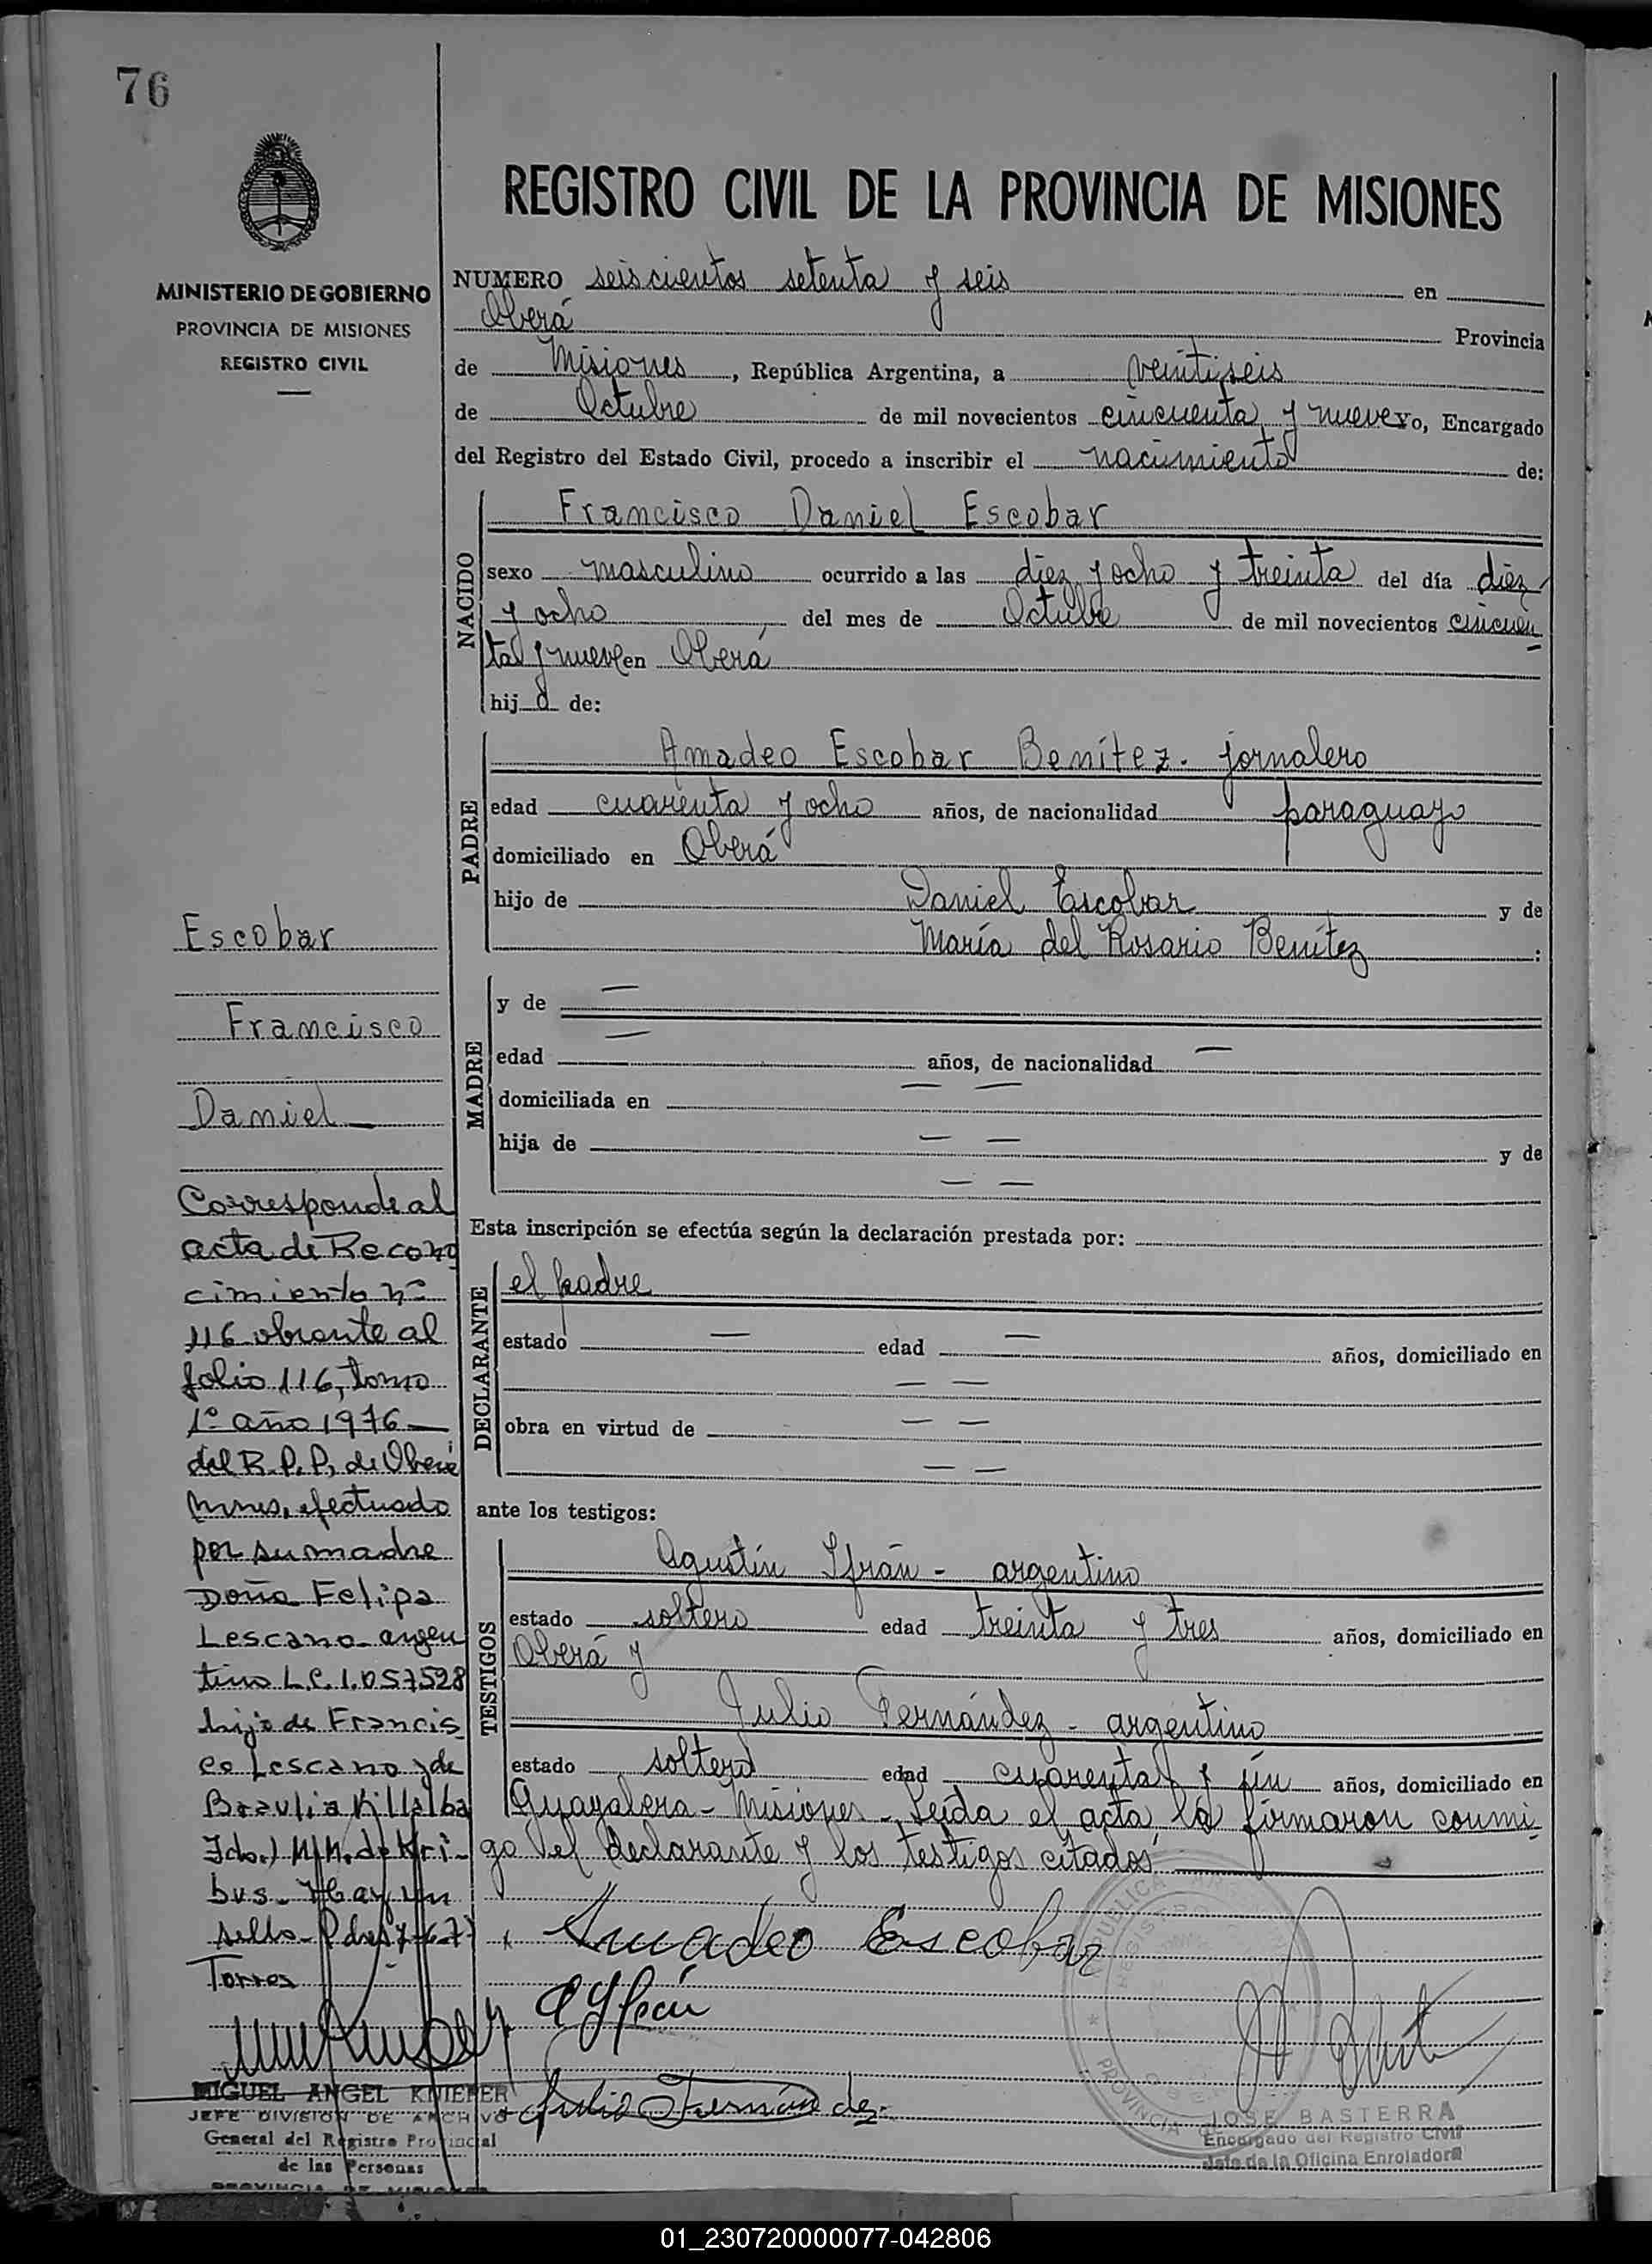 76
MINISTERIO DE GOBIERNO
PROVINCIA DE MISIONES
REGISTRO CIVIL
REGISTRO CIVIL DE LA PROVINCIA DE MISIONES
NUMERO seiscientos setenta y seis en
Oberá Provincia
de Misiones, República Argentina, a veintiseis
de Octubre de mil novecientos cincuenta y nueve yo, Encargado
del Registro del Estado Civil, procedo a inscribir el nacimiento de:
NACIDO
Francisco Daniel Escobar
sexo masculino ocurrido a las diez y ocho y treinta del día diez
y ocho, del mes de Octubre de mil novecientos cincuen
ta y nueve en Oberá
hijo de:
PADRE
Amadeo Escobar Benítez. jornalero
edad cuarenta y ocho años, de nacionalidad paraguayo
domiciliado en Oberá
hijo de Daniel Escobar y de
María del Rosario Benítez :
MADRE
y de —
edad — años, de nacionalidad —
domiciliada en — —
hija de — — y de
— —
Esta inscripción se efectúa según la declaración prestada por:
DECLARANTE
el padre
estado — edad — años, domiciliado en
— —
obra en virtud de — —
— —
ante los testigos:
TESTIGOS
Agustín Ifrán - argentino
estado soltero edad treinta y tres años, domiciliado en
Oberá y
Julio Fernández - argentino
estado soltero edad cuarenta y un años, domiciliado en
Guayalera - Misiones - Leída el acta la firmaron conmi
go el declarante y los testigos citados
Amadeo Escobar
Julio Fernández
JOSE BASTERRA
Encargado del Registro Civil
Jefe de la Oficina Enroladora
Escobar
Francisco
Daniel
Corresponde al
acta de Recono
cimiento nº
116 obrante al
folio 116, tomo
1º año 1976
del R.P.P. de Oberá
Mnes, efectuado
por su madre
Doña Felipa
Lescano argen
tina L.C. 1.057528
hija de Francis
co Lescano y de
Braulia Villalba
Fdo.) M.M. de Kri-
bus. Hay un
sello
Torres
MIGUEL ANGEL KNIEPER
JEFE DIVISION DE ARCHIVO
General del Registro Provincial
de las Personas
PROVINCIA DE MISIONES
01_230720000077-042806